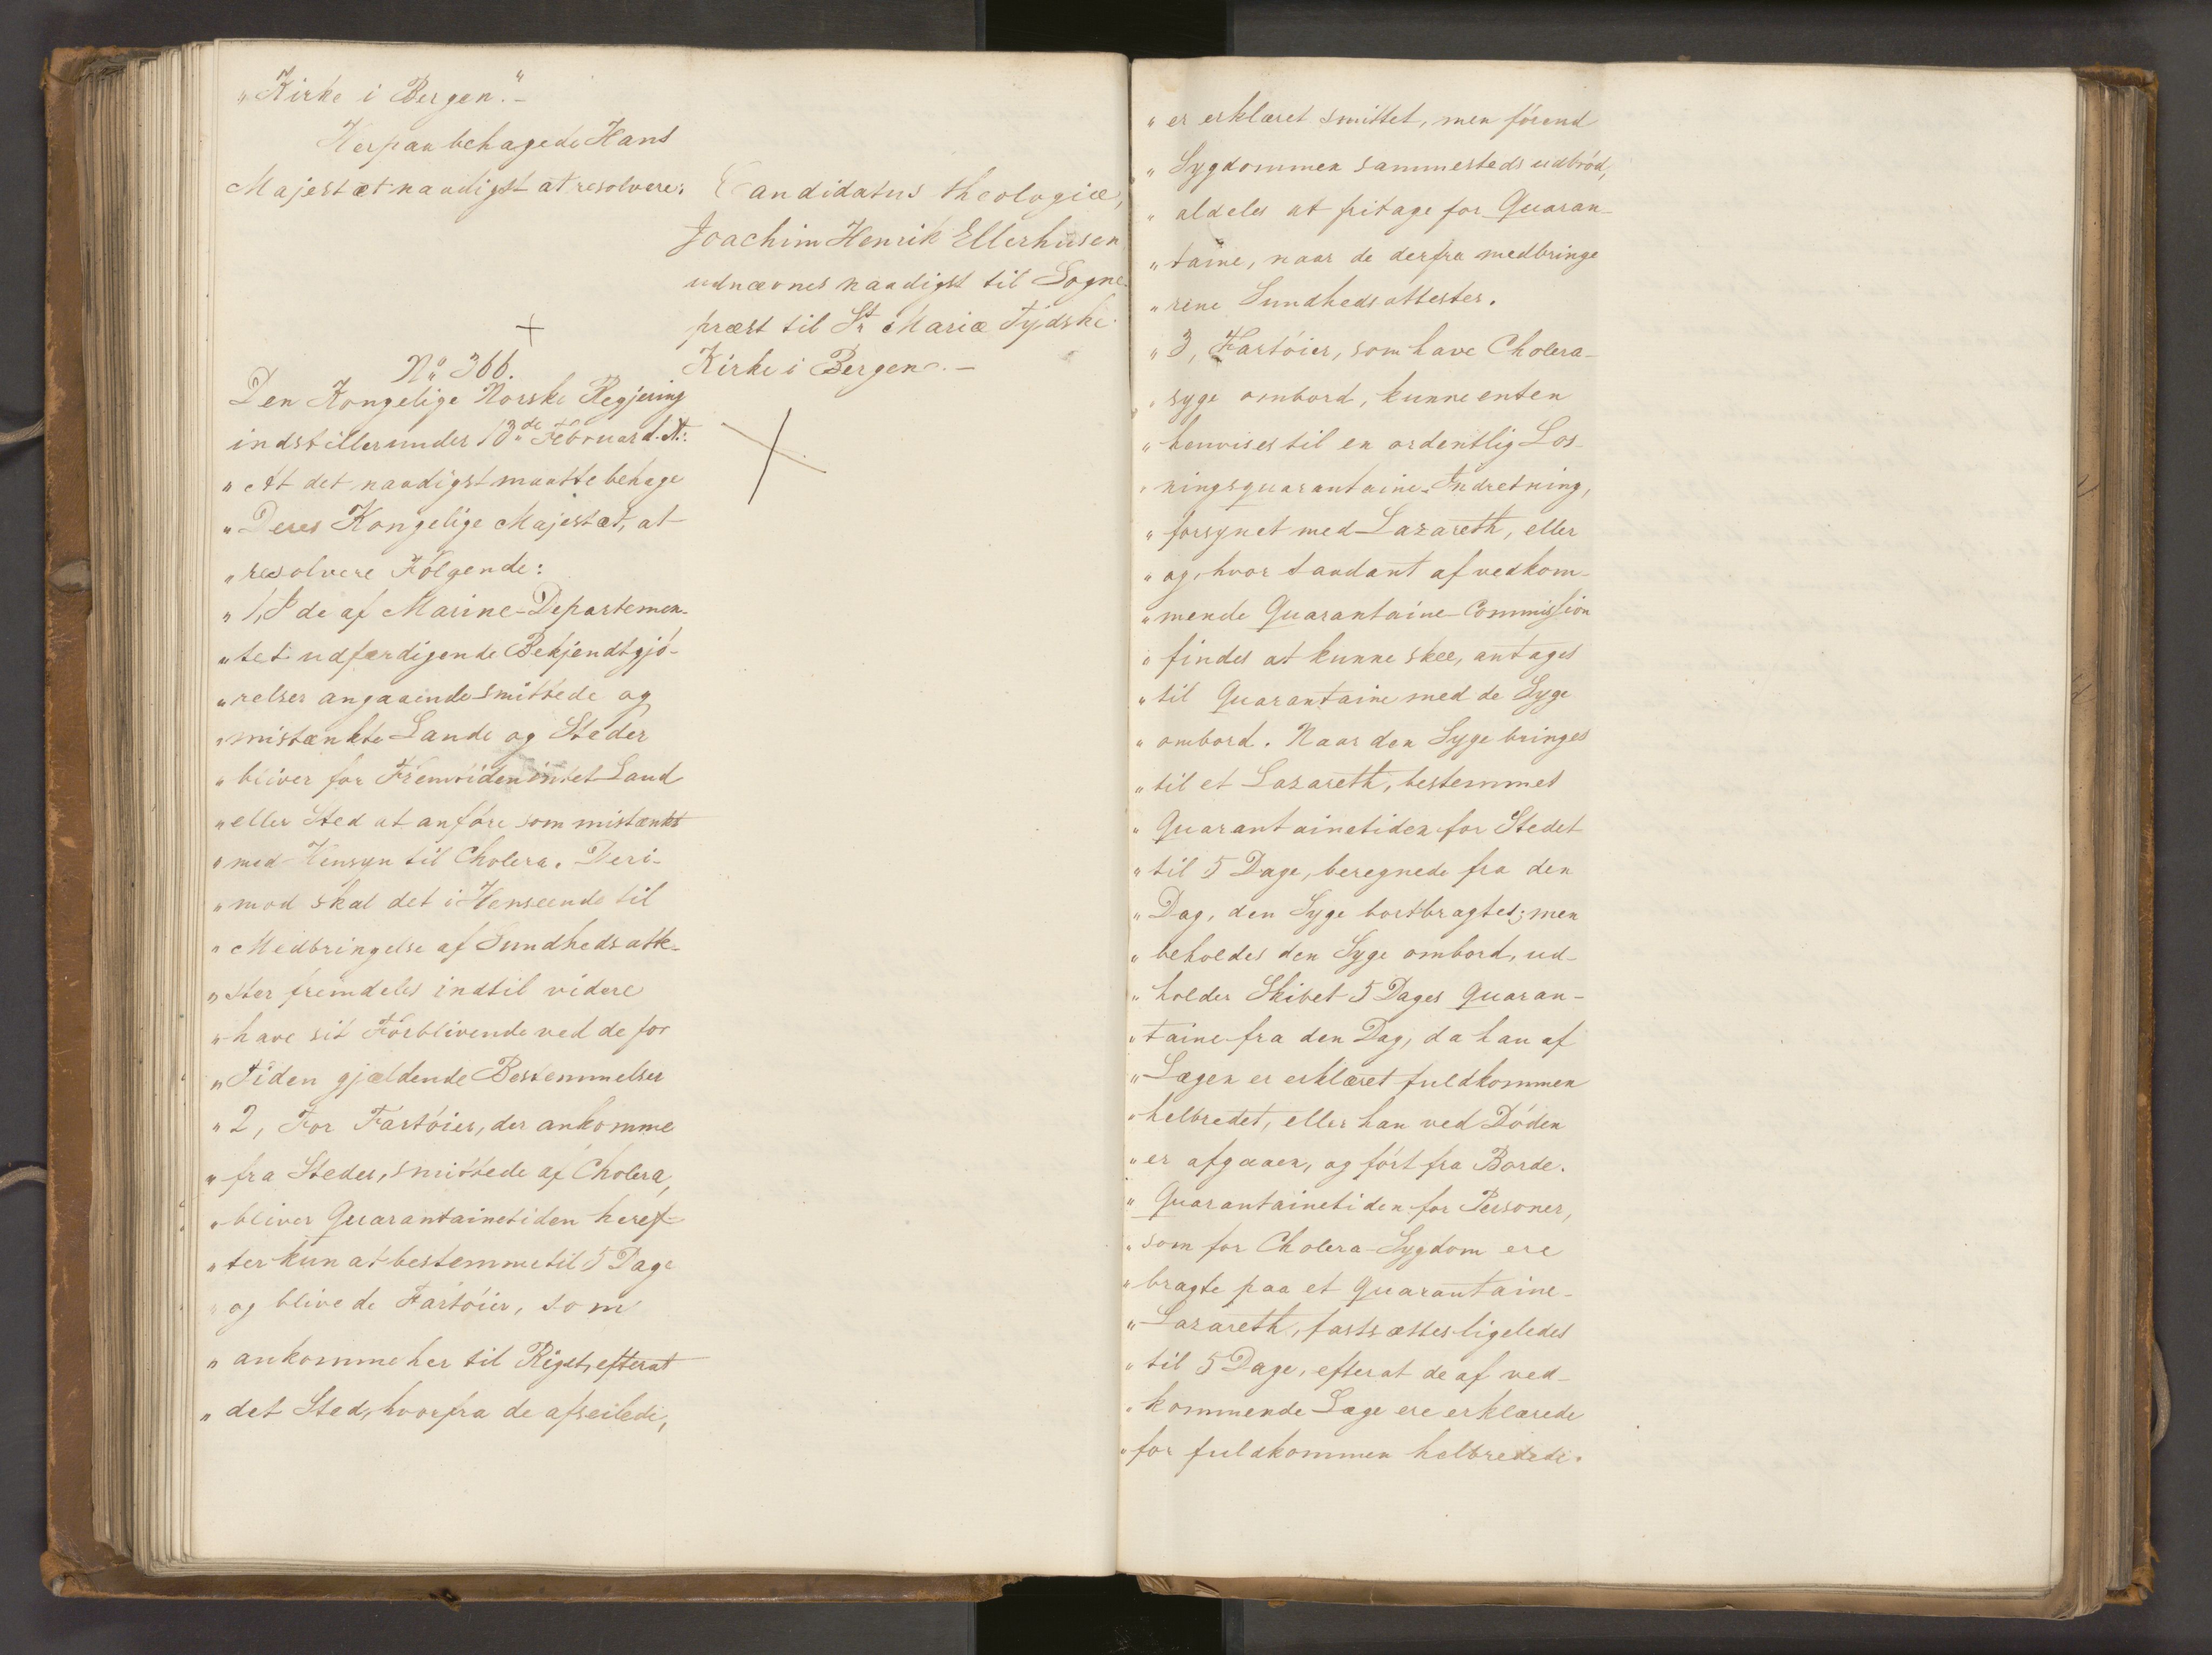 „Kirke i Bergen.“ -
Herpaa behagede Hans
Majestæt naadigst at resolvere:
Candidatus theologiæ,
Joachim Henrik Ellerhusen
udnævnes naadigst til Sogne-
præst til St Mariæ Tydske
Kirke i Bergen. -
No 366.
Den Kongelige Norske Regjering
indstiller under 13de Februar d. A.:
„At det naadigst maatte behage
„Deres Kongelige Majestæt, at
„resolvere Følgende:
„1, I de af Marine-Departemen-
„tet udfærdigende Bekjendtgjö-
„relser angaaende smittede og
„mistænkte Lande og Steder
„bliver for Fremtiden intet Land
„eller Sted at anføre som mistænkt
„med Hensyn til Cholera. Deri-
„mod skal det i Henseende til
„Medbringelse af Sundhedsatte-
„ster fremdeles indtil videre
„have sit Forblivende ved de for
„Tiden gjældende Bestemmelser
„2, For Fartöier, der ankomme
„fra Steder, smittede af Cholera,
„bliver Quarantainetiden heref-
„ter kun at bestemme til 5 Dage
„og blive de Fartöier, som
„ankomme her til Riget, efterat
„det Sted, hvorfra de afseilede,
„er erklæret smittet, men förend
„Sygdommen sammesteds udbröd,
„aldeles at fritage for Quaran-
„taine, naar de derfra medbringe
„rene Sundhedsattester.
„3, Fartöier, som have Cholera-
„syge ombord, kunne enten
„henvises til en ordentlig Los-
„ningsquarantaine-Indretning,
„forsynet med Lazareth, eller
„og, hvor saadant af vedkom-
„mende Quarantaine-Commission
„findes at kunne skee, antages
„til Quarantaine med de Syge
„ombord. Naar den Syge bringes
„til et Lazareth, bestemmes
„Quarantainetiden for Stedet
„til 5 Dage, beregnede fra den
„Dag, den Syge bortbragtes; men
„beholdes den Syge ombord, ud-
„holder Skibet 5 Dages Quaran-
„taine fra den Dag, da han af
„Lægen er erklæret fuldkommen
„helbredet, eller han ved Döden
„er afgaaen, og fört fra Borde.
„Quarantainetiden for Personer,
„som for Cholera-Sygdom ere
„bragte paa et Quarantaine-
„Lazareth, fastsættes ligeledes
„til 5 Dage, efterat de af ved-
„kommende Læge ere erklærede
„for fuldkommen helbredede.